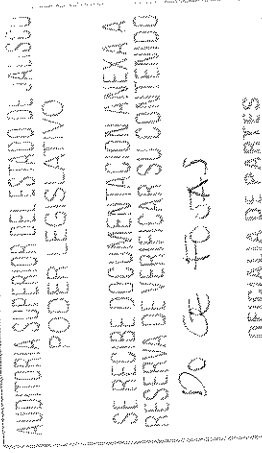 AUDITORIA SUPERIOR DEL ESTADO DE JALISCO
PODER LEGISLATIVO
SE RECIBE DOCUMENTACION ANEXA A
RESERVA DE VERIFICAR SU CONTENIDO
DE PARTES